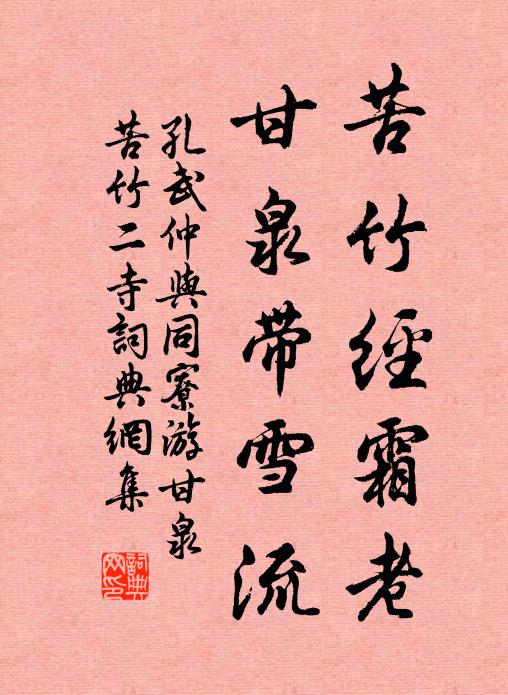 苦竹經霜老
甘泉带雪流
孔武仲與同寮游甘泉
苦竹二寺詞典網集
詞典网印